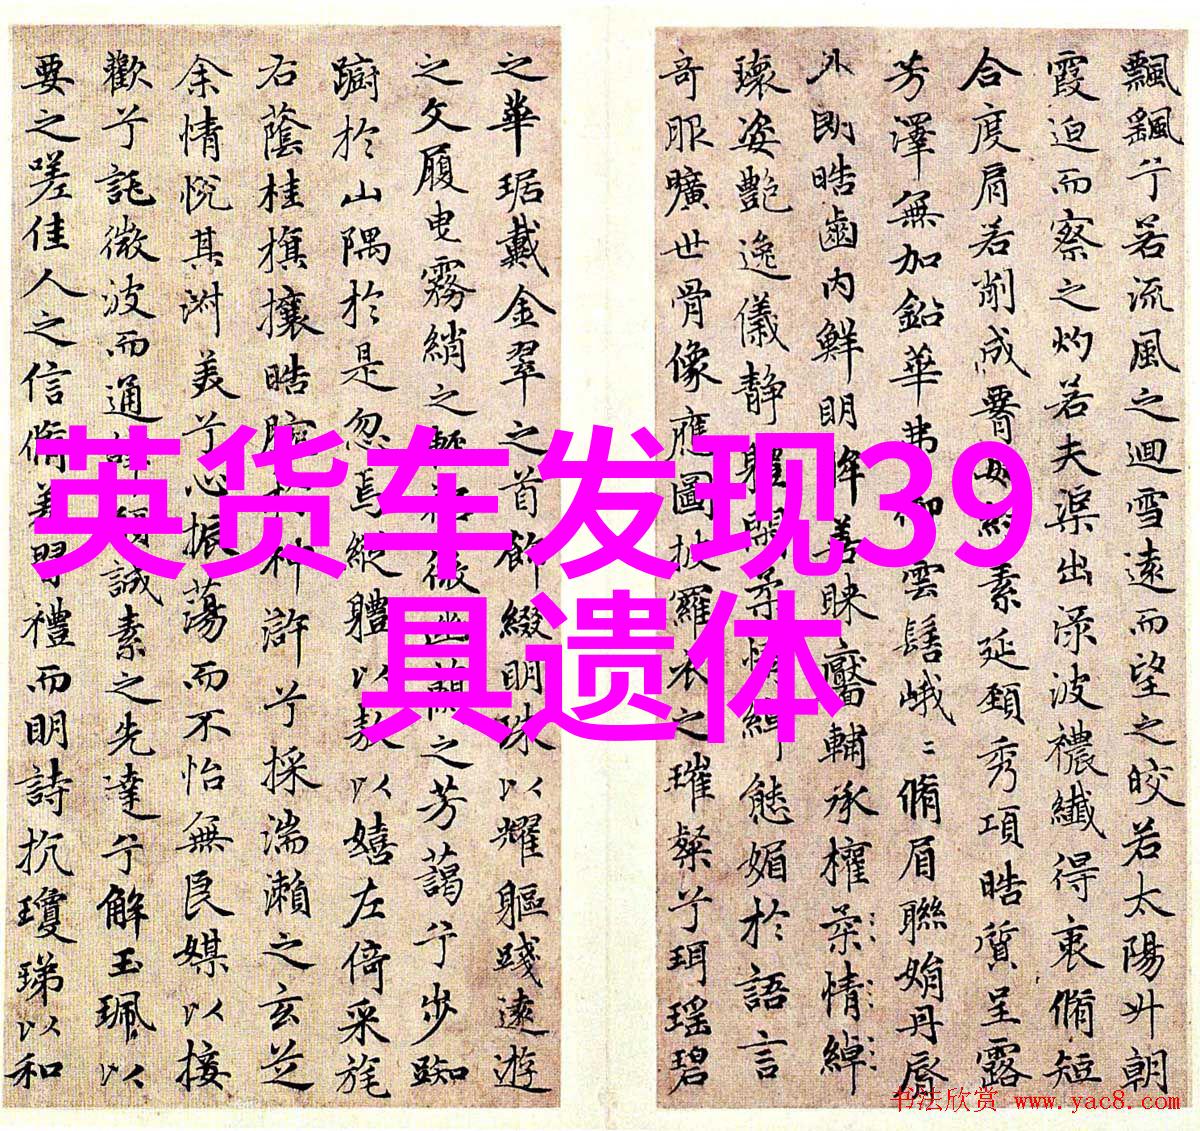 飄飖兮若流風之迴雪遠而望之皎若太陽升朝
霞迫而察之灼若夫渠出渌波襛纖得衷脩短
合度肩若削成素延頸秀項皓質呈露
芳澤無加鉛華弗御雲髻峨〻脩眉聯娟丹脣
外朗皓齒内鮮明眸善睞靨輔承權柔情綽
瓌姿艷逸儀静體閑柔情綽態媚於語言
奇服曠世骨像應圖披羅衣之璀粲兮珥瑶碧
之華琚戴金翠之首飾綴明珠以耀軀踐遠遊
之文履曳霧綃之輕裾微幽蘭之芳藹兮步踟
蹰於山隅於是忽焉縱體以敖以嬉左倚采旄
右蔭桂旗攘皓腕於神滸兮採湍瀨之玄芝
余情悅其淑美兮心振蕩而不怡無良媒以接
歡兮託微波而通辭願誠素之先達兮解玉珮以
要之嗟佳人之信脩羌習禮而明詩抗瓊珶以和
英货车发现39
具遗体
书法欣赏 www.yac8.com